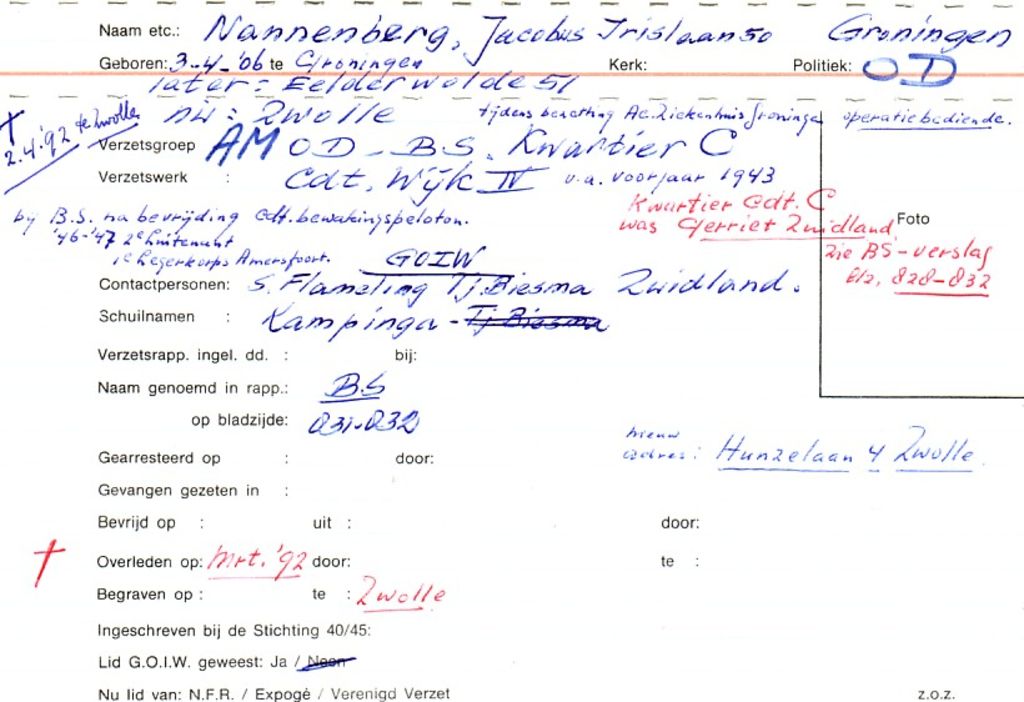 Naam etc.: Nannenberg, Jacobus Irislaan 50 Groningen
Geboren: 3-4-'06 te Groningen Kerk: Politiek: OD
later: Eelderwolde 51
nu: Zwolle tijdens bezetting Ac. Ziekenhuis Groningen operatiebediende.
† 2.4.'92 te Zwolle
Verzetsgroep AM OD - B.S. Kwartier C
Verzetswerk : Cdt. Wijk IV v.a. voorjaar 1943
Kwartier Cdt. C
was Gerriet Zuidland
Foto
zie BS-verslag
blz. 828-832
bij B.S. na bevrijding Cdt. bewakingspeloton.
'46-'47 2e Luitenant
1e Legerkorps Amersfoort. GOIW
Contactpersonen: S. Flameling Tj. Biesma Zuidland.
Schuilnamen : Kampinga - Tj Biesma
Verzetsrapp. ingel. dd. : bij:
Naam genoemd in rapp.: B.S
op bladzijde: 831-832
nieuw
adres: Hunzelaan 4 Zwolle.
Gearresteerd op : door:
Gevangen gezeten in :
Bevrijd op : uit : door:
† Overleden op: Mrt. '92 door: te :
Begraven op : te : Zwolle
Ingeschreven bij de Stichting 40/45:
Lid G.O.I.W. geweest: Ja / Neen
Nu lid van: N.F.R. / Expogé / Verenigd Verzet z.o.z.